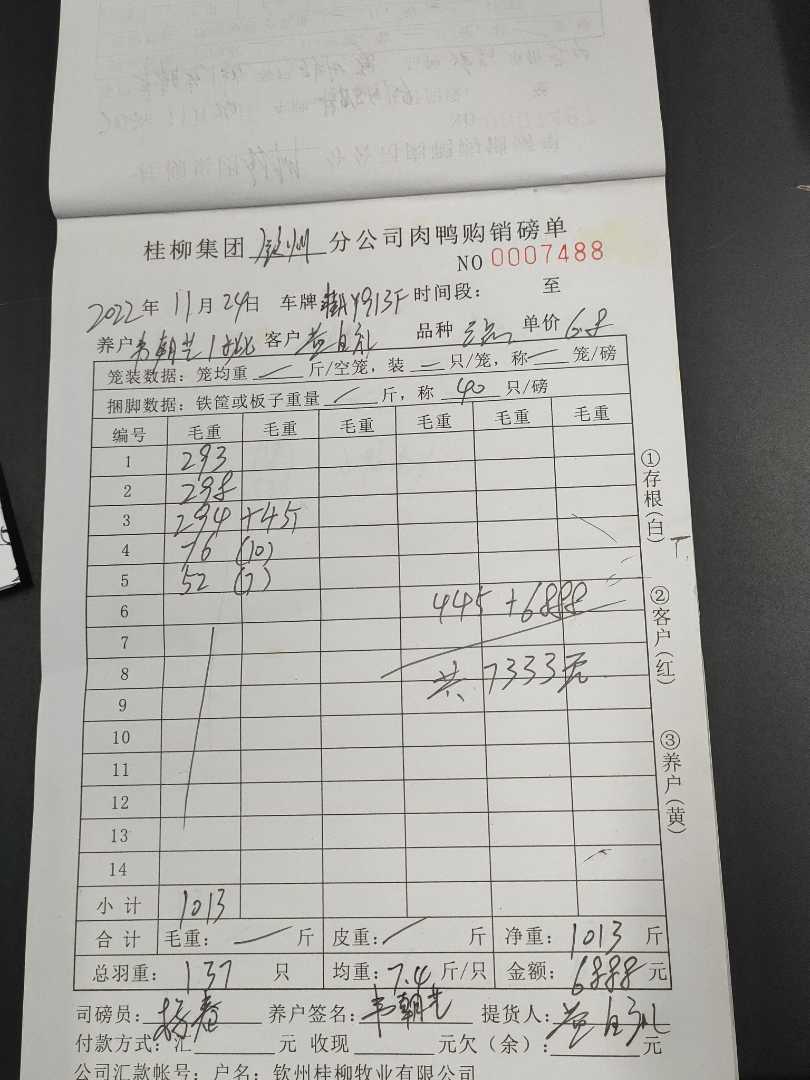 桂柳集团 钦州 分公司肉鸭购销磅单
NO 0007488
2022年 11月 24日 车牌 桂AY913F 时间段： 至
养户 韦朝艺 1批 客户 黄自礼 品种 单价 6.8
笼装数据：笼均重 — 斤/空笼，装 — 只/笼，称 — 笼/磅
捆脚数据：铁筐或板子重量 — 斤，称 40 只/磅
编号 毛重 毛重 毛重 毛重 毛重 毛重
1 293
2 298
3 294 +45
4 76 (10)
5 52 (7)
6 445 +6888
7
8 共 7333元
9
10
11
12
13
14
小计 1013
合计 毛重： — 斤 皮重： — 斤 净重： 1013 斤
总羽重： 137 只 均重： 7.4 斤/只 金额： 6888 元
司磅员： 杨春 养户签名： 韦朝艺 提货人： 黄自礼
付款方式：汇 元 收现 元欠（余）： 元
公司汇款帐号：户名：钦州桂柳牧业有限公司
①存根（白）
②客户（红）
③养户（黄）